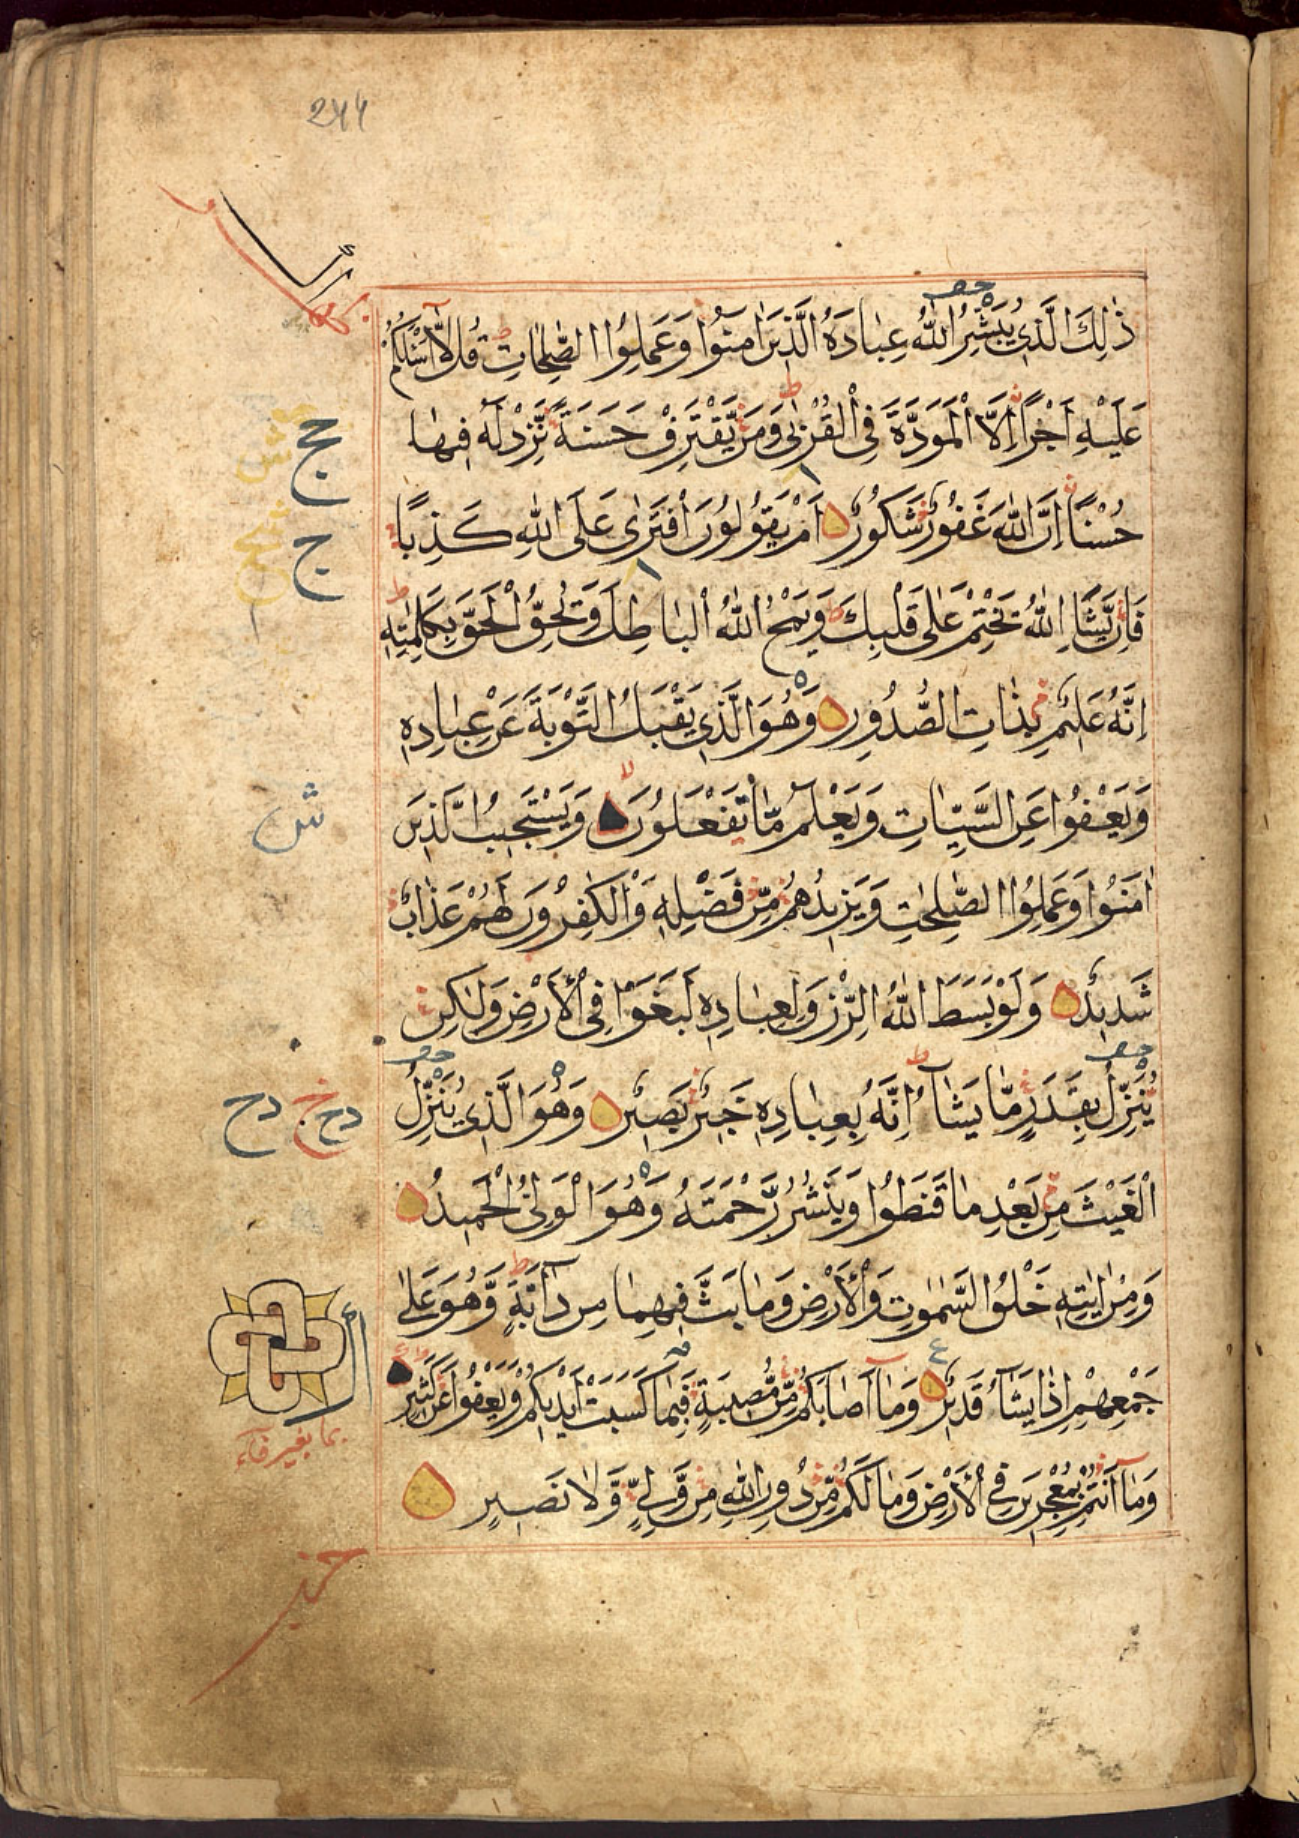 244
ذٰلِكَ الَّذِي يُبَشِّرُ اللّٰهُ عِبَادَهُ الَّذِينَ اٰمَنُوا وَعَمِلُوا الصّٰلِحَاتِ قُل لَّا أَسْئَلُكُمْ
عَلَيْهِ اَجْرًا اِلَّا الْمَوَدَّةَ فِي الْقُرْبٰى وَمَن يَّقْتَرِفْ حَسَنَةً نَّزِدْ لَهُ فِيهَا
حُسْنًا اِنَّ اللّٰهَ غَفُورٌ شَكُورٌ اَمْ يَقُولُونَ افْتَرٰى عَلَى اللّٰهِ كَذِبًا
فَاِن يَّشَاِ اللّٰهُ يَخْتِمْ عَلٰى قَلْبِكَ وَيَمْحُ اللّٰهُ الْبَاطِلَ وَيُحِقُّ الْحَقَّ بِكَلِمٰتِهِ
اِنَّهُ عَلِيمٌ بِذَاتِ الصُّدُورِ وَهُوَ الَّذِي يَقْبَلُ التَّوْبَةَ عَنْ عِبَادِهِ
وَيَعْفُوا عَنِ السَّيِّاٰتِ وَيَعْلَمُ مَا تَفْعَلُونَ وَيَسْتَجِيبُ الَّذِينَ
اٰمَنُوا وَعَمِلُوا الصّٰلِحٰتِ وَيَزِيدُهُم مِّن فَضْلِهِ وَالْكٰفِرُونَ لَهُمْ عَذَابٌ
شَدِيدٌ وَلَوْ بَسَطَ اللّٰهُ الرِّزْقَ لِعِبَادِهِ لَبَغَوْا فِي الْأَرْضِ وَلٰكِن
يُنَزِّلُ بِقَدَرٍ مَّا يَشَاءُ اِنَّهُ بِعِبَادِهِ خَبِيرٌ بَصِيرٌ وَهُوَ الَّذِي يُنَزِّلُ
الْغَيْثَ مِن بَعْدِ مَا قَنَطُوا وَيَنْشُرُ رَحْمَتَهُ وَهُوَ الْوَلِيُّ الْحَمِيدُ
وَمِنْ اٰيٰتِهِ خَلْقُ السَّمٰوٰتِ وَالْأَرْضِ وَمَا بَثَّ فِيهِمَا مِن دَابَّةٍ وَّهُوَ عَلٰى
جَمْعِهِمْ اِذَا يَشَاءُ قَدِيرٌ وَمَا اَصَابَكُم مِّن مُّصِيبَةٍ فَبِمَا كَسَبَتْ اَيْدِيكُمْ وَيَعْفُوا عَن كَثِيرٍ
وَمَا اَنْتُمْ بِمُعْجِزِينَ فِي الْأَرْضِ وَمَا لَكُم مِّن دُونِ اللّٰهِ مِن وَّلِيٍّ وَّلَا نَصِيرٍ
بما بغير فاء